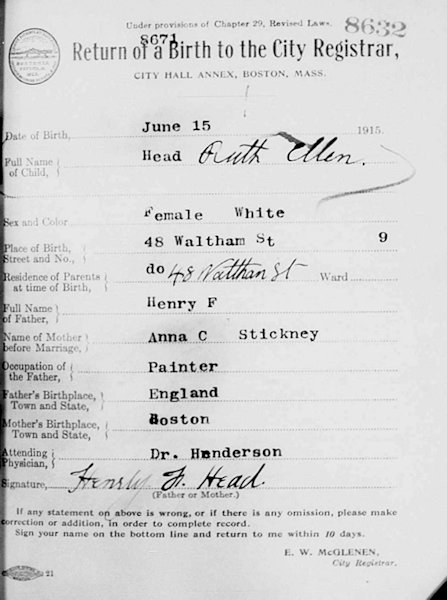 Under provisions of Chapter 29, Revised Laws.
8632
8671
Return of a Birth to the City Registrar,
CITY HALL ANNEX, BOSTON, MASS.
Date of Birth, June 15 1915.
Full Name of Child, Head Ruth Ellen.
Sex and Color Female White
Place of Birth, Street and No., 48 Waltham St 9
Residence of Parents at time of Birth, do 48 Waltham St Ward
Full Name of Father, Henry F
Name of Mother before Marriage, Anna C Stickney
Occupation of the Father, Painter
Father's Birthplace, Town and State, England
Mother's Birthplace, Town and State, Boston
Attending Physician, Dr. Henderson
Signature, Henry F. Head.
(Father or Mother.)
If any statement on above is wrong, or if there is any omission, please make
correction or addition, in order to complete record.
Sign your name on the bottom line and return to me within 10 days.
E. W. McGLENEN,
City Registrar.
21